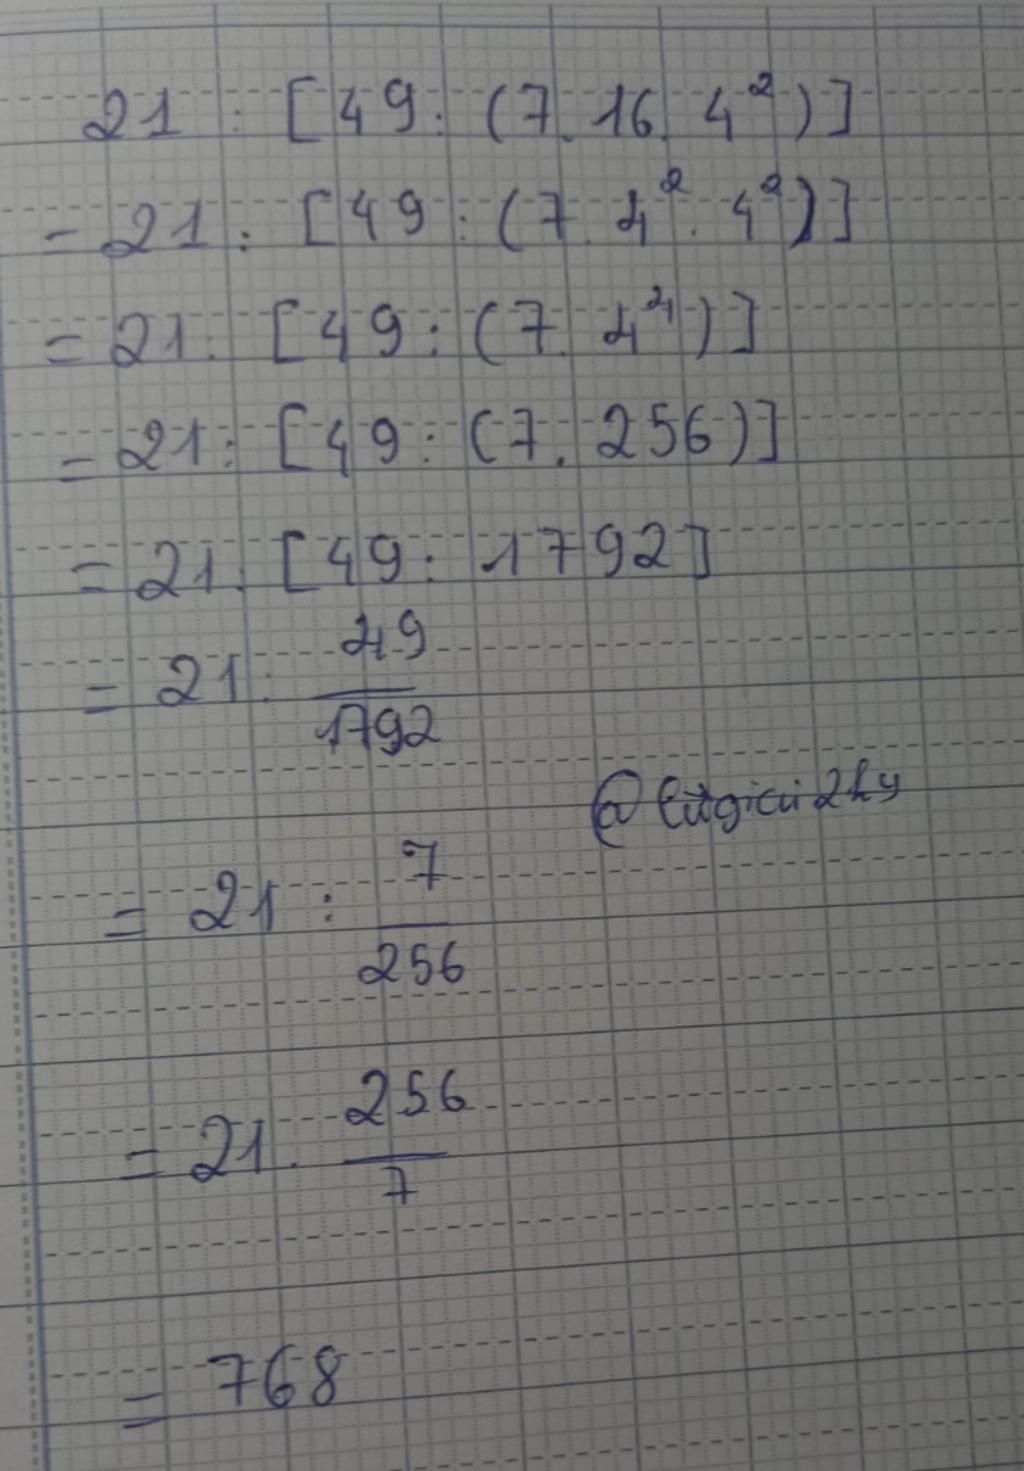 21 : [49 : (7 . 16 . 4²)]
= 21 : [49 : (7 . 4² . 4²)]
= 21 : [49 : (7 . 4⁴)]
= 21 : [49 : (7 . 256)]
= 21 : [49 : 1792]
= 21 : 49/1792
= 21 : 7/256
= 21 . 256/7
= 768